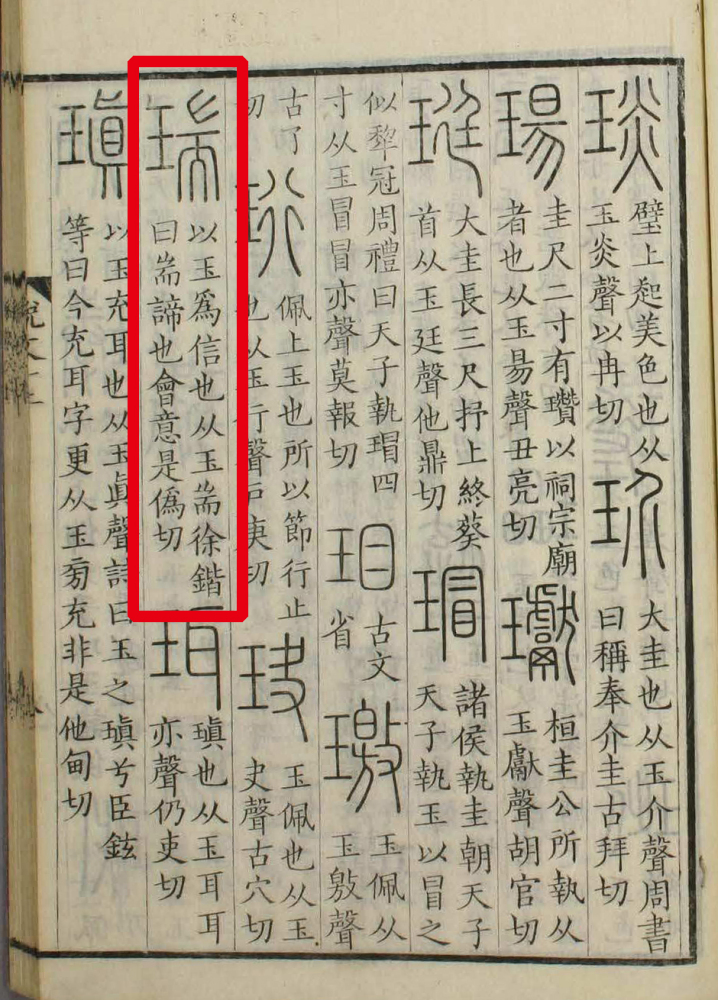 琰
璧上起美色也从
玉炎聲以冉切
玠
大圭也从玉介聲周書
曰稱奉介圭古拜切
瑒
圭尺二寸有瓚以祠宗廟
者也从玉昜聲丑亮切
瓛
桓圭公所執从
玉獻聲胡官切
珽
大圭長三尺抒上終葵
首从玉廷聲他鼎切
瑁
諸侯執圭朝天子
天子執玉以冒之
似犂冠周禮曰天子執瑁四
寸从玉冒冒亦聲莫報切
古文
省
璬
玉佩从
玉敫聲
古了
切
珩
佩上玉也所以節行止
也从玉行聲戶庚切
玦
玉佩也从玉
夬聲古穴切
瑞
以玉爲信也从玉耑徐鍇
曰耑諦也會意是僞切
珥
瑱也从玉耳耳
亦聲仍吏切
瑱
以玉充耳也从玉眞聲詩曰玉之瑱兮臣鉉
等曰今充耳字更从玉旁充非是他甸切
說文一上